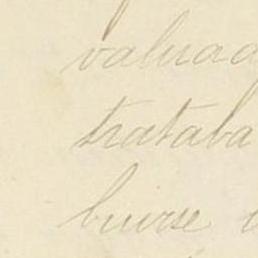 valuad
trataba
buirse